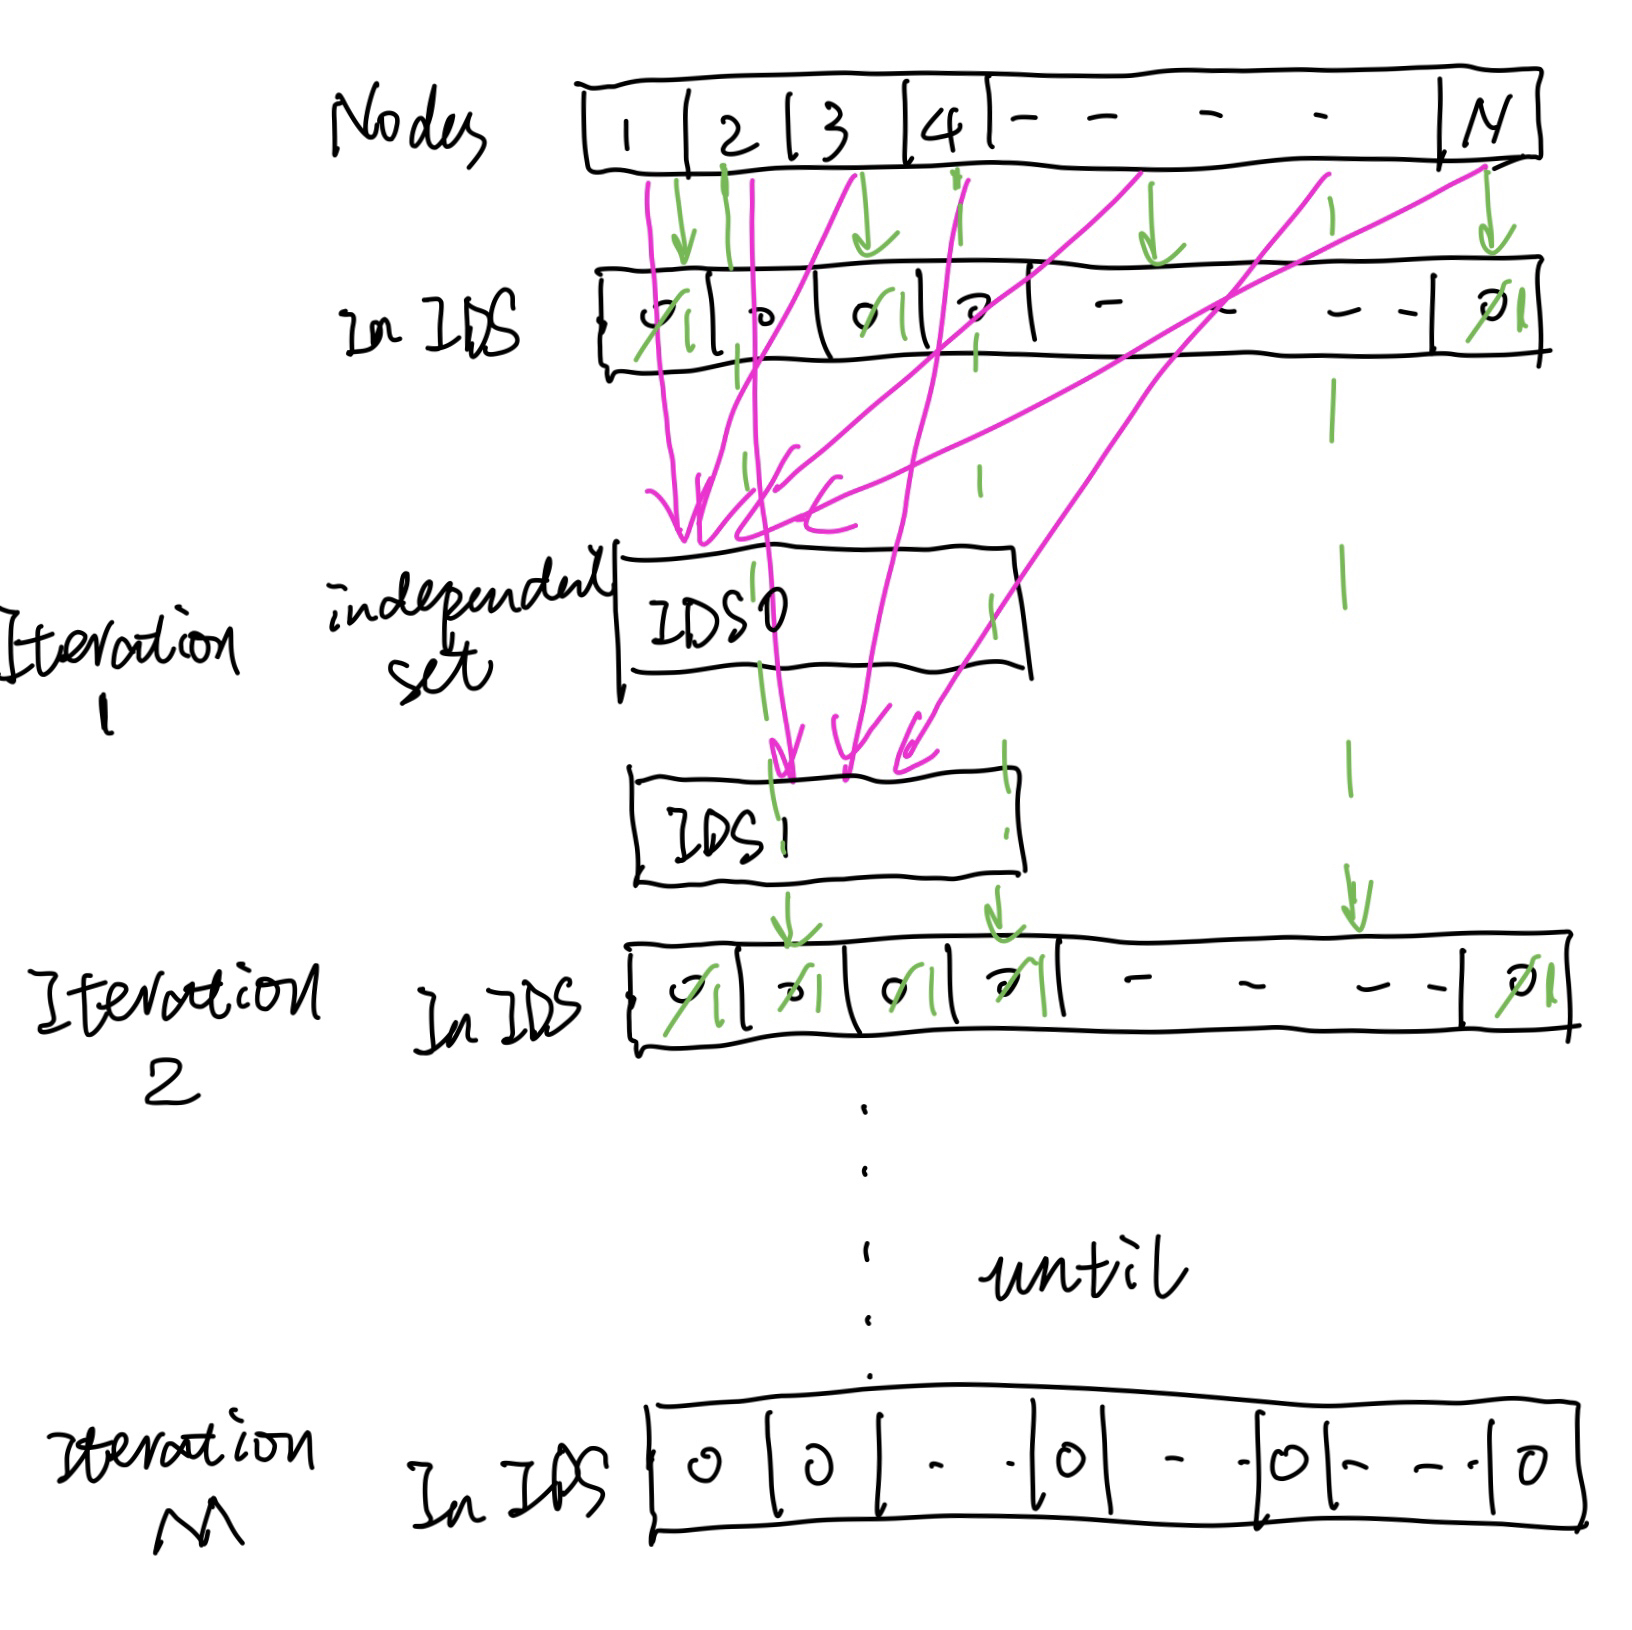 Nodes 1 2 3 4 - - - - N
In IDS 0 1 0 0 1 0 - - - - 0 1
Iteration 1
independent set
IDS0
IDS1
Iteration 2
In IDS 0 1 0 1 0 1 0 1 - - - - 0 1
until
Iteration M
In IDS 0 0 - - 0 - - 0 - - - 0